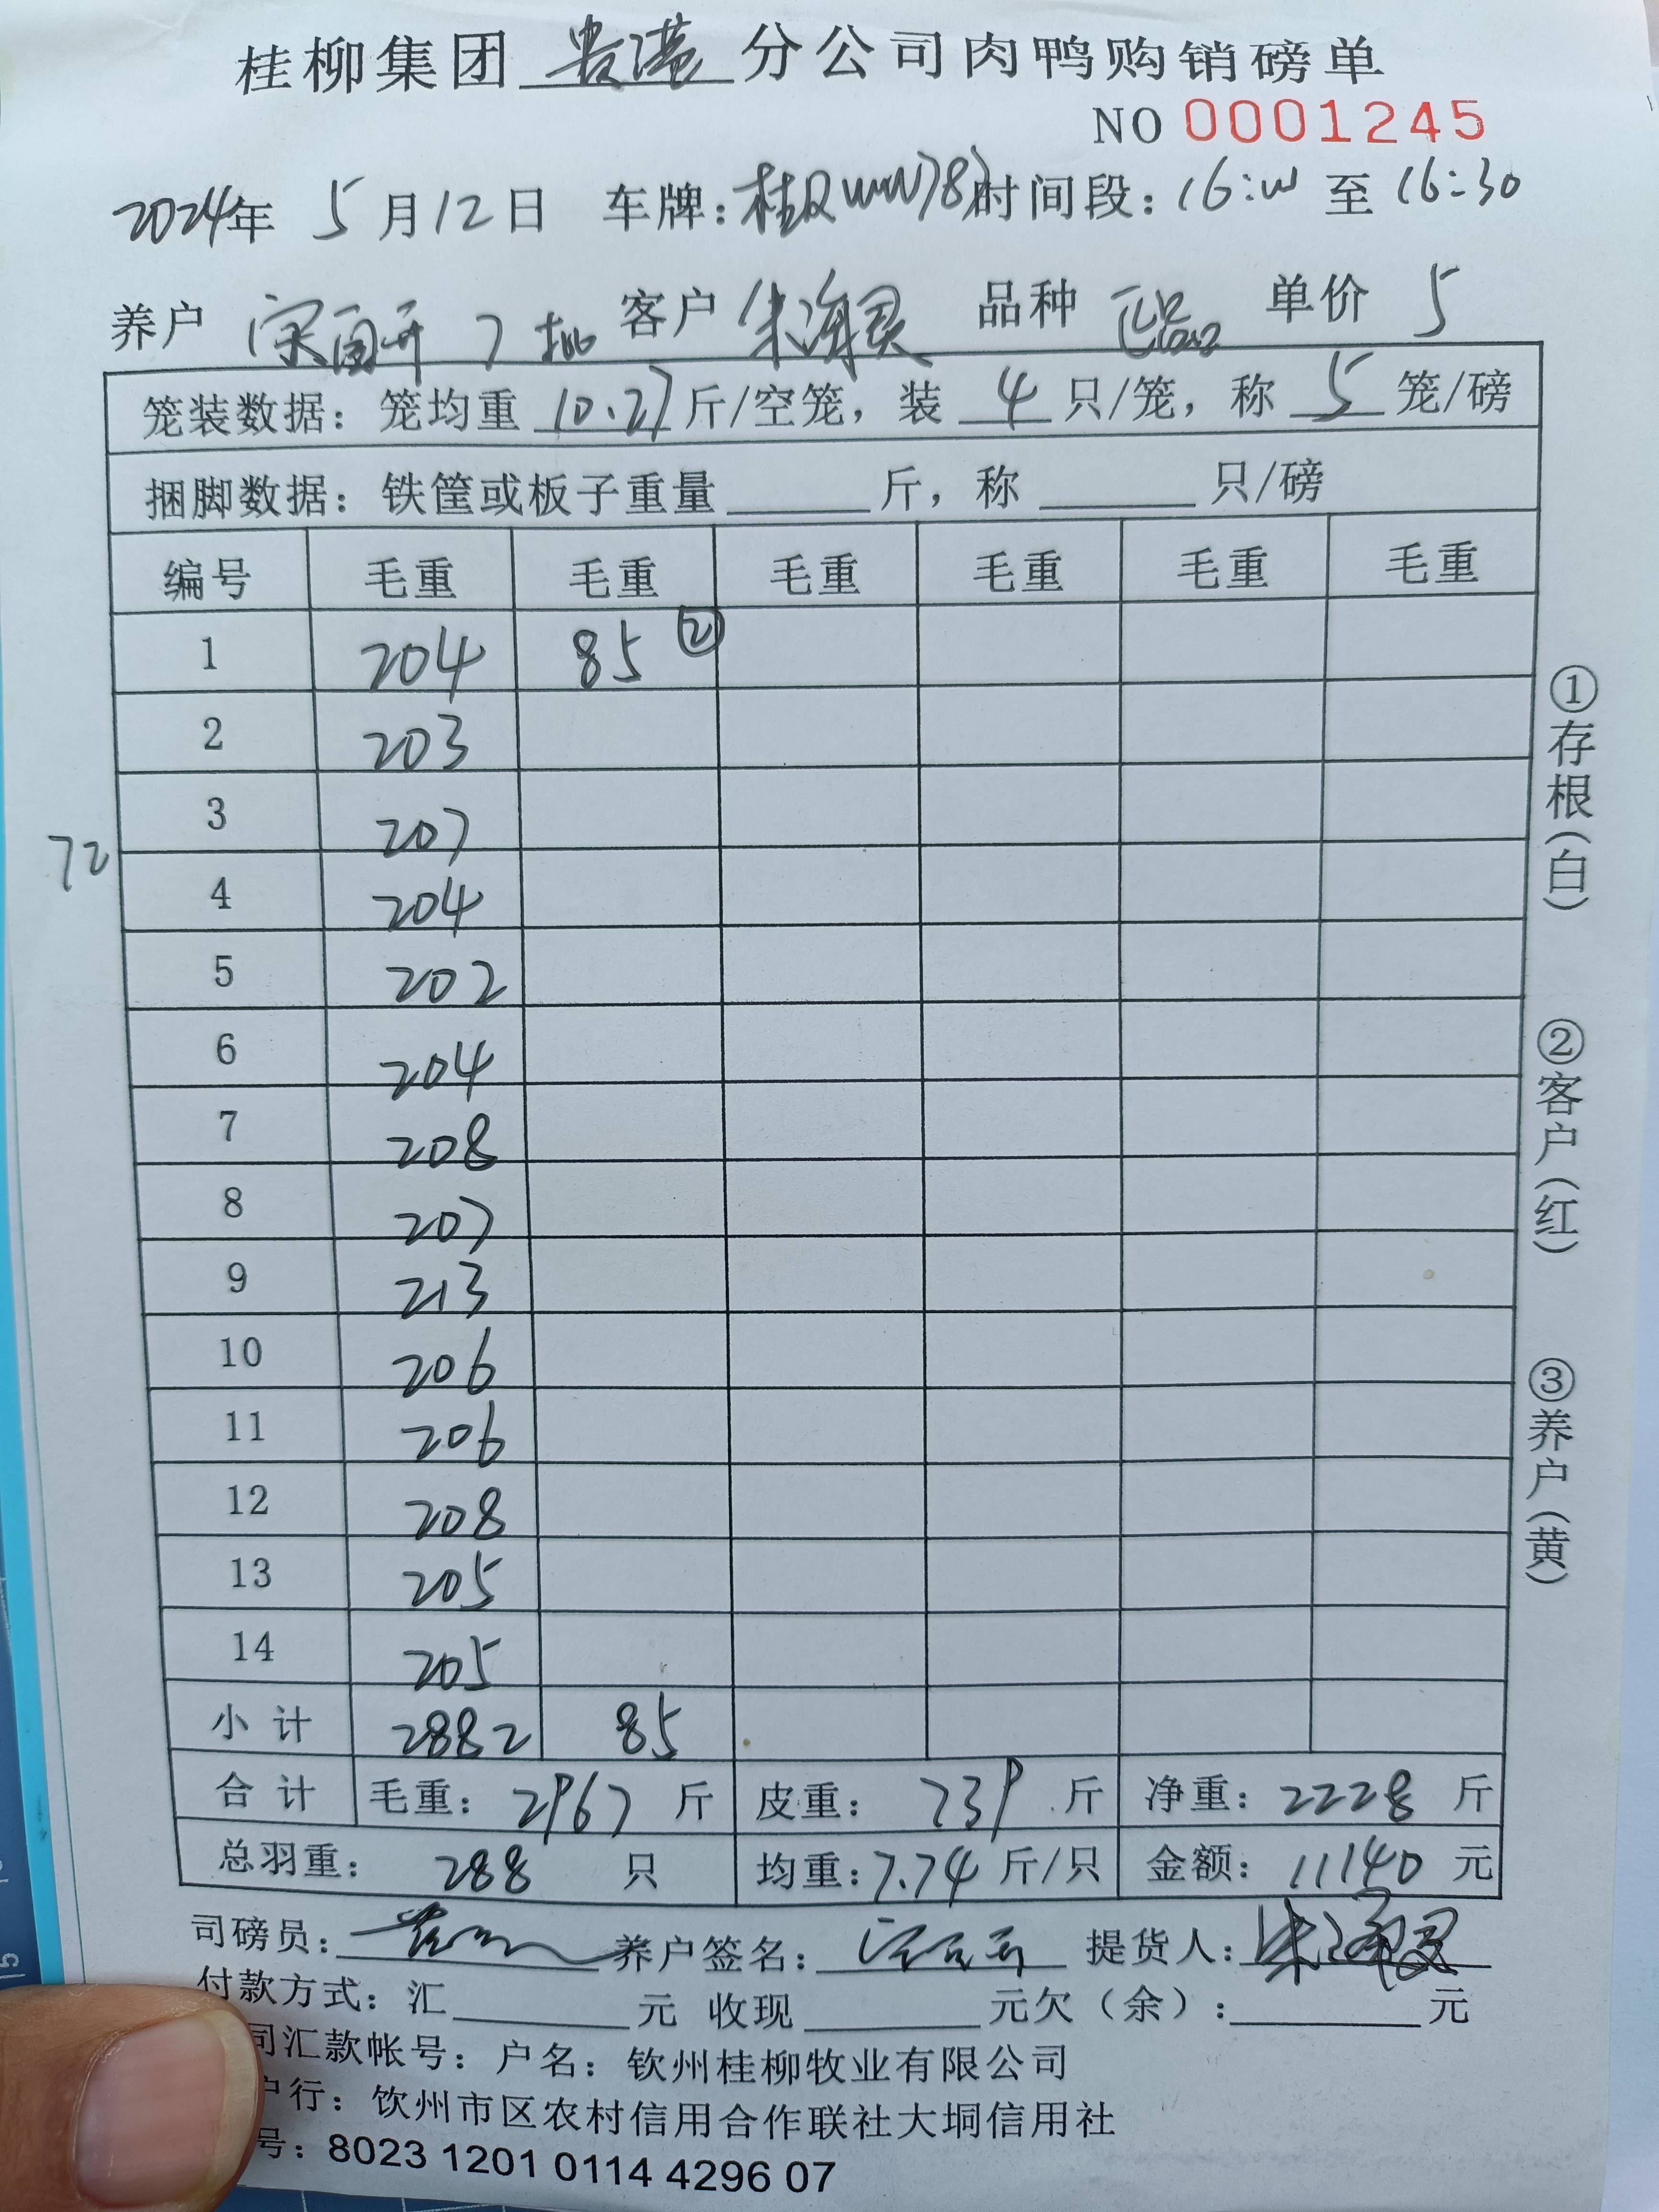 桂柳集团 贵港 分公司肉鸭购销磅单
NO 0001245
2024年 5月12日 车牌: 时间段: 至 16:30
养户 7批 客户 朱海灵 品种 正品 单价 5
笼装数据: 笼均重 10.27 斤/空笼, 装 4 只/笼, 称 5 笼/磅
捆脚数据: 铁筐或板子重量 斤, 称 只/磅
编号 毛重 毛重 毛重 毛重 毛重 毛重
1 204 85 ②
2 203
3 207
72
4 204
5 202
6 204
7 208
8 207
9 213
10 206
11 206
12 208
13 205
14 205
小计 2882 85
合计 毛重: 2967 斤 皮重: 739 斤 净重: 2228 斤
总羽重: 288 只 均重: 7.74 斤/只 金额: 11140 元
司磅员: 养户签名: 提货人: 朱海灵
付款方式: 汇 元 收现 元欠(余): 元
司汇款帐号: 户名: 钦州桂柳牧业有限公司
户行: 钦州市区农村信用合作联社大垌信用社
号: 8023 1201 0114 4296 07
①存根(白)
②客户(红)
③养户(黄)